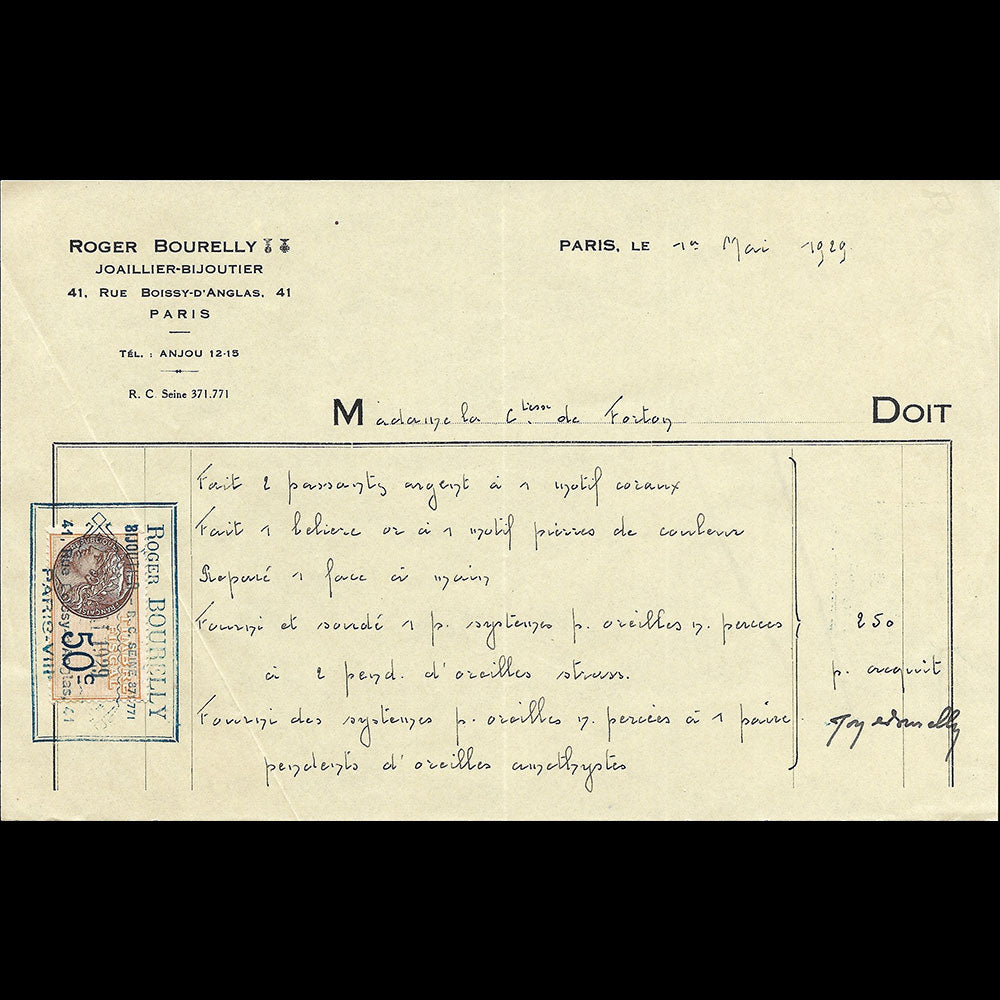 ROGER BOURELLY
JOAILLIER-BIJOUTIER
41, RUE BOISSY-D'ANGLAS, 41
PARIS
TÉL. : ANJOU 12-15
R. C. Seine 371.771
PARIS, LE 1er Mai 1929
Madame la Ctesse de Forton DOIT
Fait 2 passants argent à 1 motif coraux
Fait 1 beliere or à 1 motif pierres de couleur
Reparé 1 face à main
Fourni et soudé 1 p. systemes p. oreilles n. percees
à 2 pend. d'oreilles strass.
250
p. acquit
Fourni des systemes p. oreilles n. percées à 1 paire
pendents d'oreilles amethystes
ROGER BOURELLY
BIJOUTIER - R.C. SEINE 371.771
41, Rue Boissy d'Anglas, 41
PARIS-VIII
50c
1929